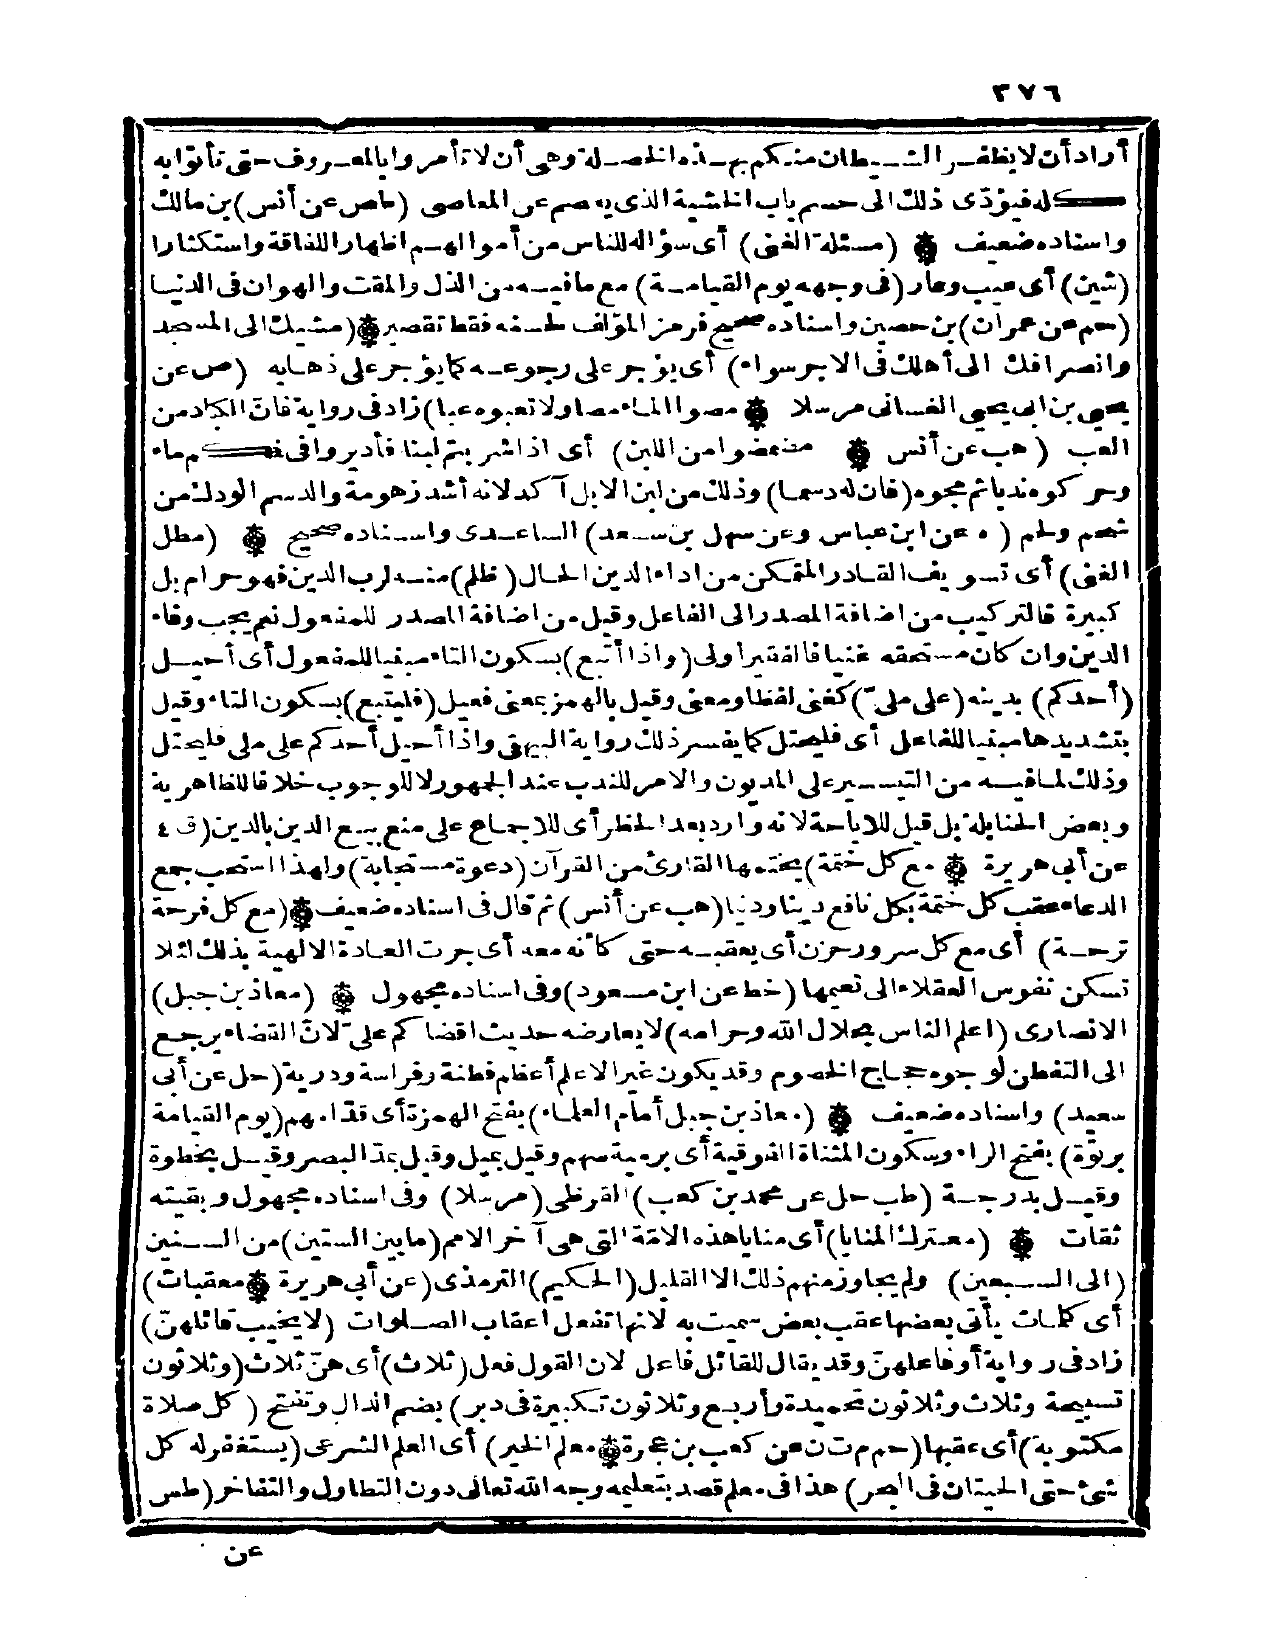 ٣٧٦
أراد أن لا يظفر الشيطان منكم بهذه الخصلة وهى أن لا تأمروا بالمعروف حتى تأتوا به
كله فيؤدى ذلك الى حسم باب الخشية الذى يعصم عن المعاصى (طص عن أنس) بن مالك
واسناده ضعيف ۞ (مسئلة الغنى) أى سؤاله للناس من أموالهم اظهارا للفاقة واستكثارا
(شين) أى عيب وعار (فى وجهه يوم القيامة) مع ما فيه من الذل والمقت والهوان فى الدنيا
(حم عن عمران) بن حصين واسناده صحيح فرمز المؤلف لحسنه فقط تقصير ۞ (مشيك الى المسجد
وانصرافك الى أهلك فى الاجر سواء) أى يؤجر على رجوعه كما يؤجر على ذهابه (ص عن
يحيى بن ابى يحيى الغسانى مرسلا ۞ مصوا الماء مصا ولا تعبوه عبا) زاد فى رواية فان الكاد من
العب (هب عن أنس ۞ مضمضوا من اللبن) أى اذا شربتم لبنا فأديروا فى فمكم ماء
وحركوه ندبا ثم مجوه (فان له دسما) وذلك من لبن الابل آكد لانه أشد زهومة والدسم الودك من
شحم ولحم (ه عن ابن عباس وعن سهل بن سعد) الساعدى واسناده صحيح ۞ (مطل
الغنى) أى تسويف القادر المتمكن من اداء الدين الحال (ظلم) منه لرب الدين فهو حرام بل
كبيرة فالتركيب من اضافة المصدر الى الفاعل وقيل من اضافة المصدر للمفعول نم يجب وفاء
الدين وان كان مستحقه غنيا فالفقير أولى (واذا أتبع) بسكون التاء مبنيا للمفعول أى أحيل
(أحدكم) بدينه (على ملىّ) كغنى لفظا ومعنى وقيل بالهمز بمعنى فعيل (فليتبع) بسكون التاء وقيل
بتشديدها مبنيا للفاعل أى فليحتل كما يفسر ذلك رواية البيهقى واذا أحيل أحدكم على ملى فليحتل
وذلك لما فيه من التيسير على المديون والامر للندب عند الجمهور لا للوجوب خلافا للظاهرية
وبعض الحنابلة بل قيل للاباحة لانه وارد بعد الحظر أى للاجماع على منع بيع الدين بالدين (ق ٤
عن أبى هريرة ۞ مع كل ختمة) يختمها القارئ من القرآن (دعوة مستجابة) ولهذا استحب جمع
الدعاء عقب كل ختمة بكل نافع دينا ودنيا (هب عن أنس) ثم قال فى اسناده ضعيف ۞ (مع كل فرحة
ترحة) أى مع كل سرور حزن أى يعقبه حتى كأنه معه أى جرت العادة الالهية بذلك لئلا
تسكن نفوس العقلاء الى نعيمها (خط عن ابن مسعود) وفى اسناده مجهول ۞ (معاذ بن جبل)
الانصارى (اعلم الناس بحلال الله وحرامه) لا يعارضه حديث اقضاكم علىّ لان القضاء يرجع
الى التفطن لوجوه حجاج الخصوم وقد يكون غير الاعلم أعظم فطنة وفراسة ودربة (حل عن أبى
سعيد) واسناده ضعيف ۞ (معاذ بن جبل أمام العلماء) بفتح الهمزة أى قدامهم (يوم القيامة
برتوة) بفتح الراء وسكون المثناة الفوقية أى برمية سهم وقيل بميل وقيل بمد البصر وقيل بخطوة
وقيل بدرجة (طب حل عن محمد بن كعب) القرظى (مرسلا) وفى اسناده مجهول وبقيته
ثقات ۞ (معترك المنايا) أى منايا هذه الامة التى هى آخر الامم (ما بين الستين) من السنين
(الى السبعين) ولم يجاوز منهم ذلك الا القليل (الحكيم) الترمذى (عن أبى هريرة ۞ معقبات)
أى كلمات يأتى بعضها عقب بعض سميت به لانها تفعل اعقاب الصلوات (لا يخيب قائلهنّ)
زاد فى رواية أو فاعلهنّ وقد يقال للقائل فاعل لان القول فعل (ثلاث) أى هنّ ثلاث (وثلاثون
تسبيحة وثلاث وثلاثون تحميدة وأربع وثلاثون تكبيرة فى دبر) بضم الدال وتفتح (كل صلاة
مكتوبة) أى عقبها (حم م ت ن عن كعب بن عجرة ۞ معلم الخير) أى العلم الشرعى (يستغفر له كل
شئ حتى الحيتان فى البحر) هذا فى معلم قصد بتعليمه وجه الله تعالى دون التطاول والتفاخر (طس
عن